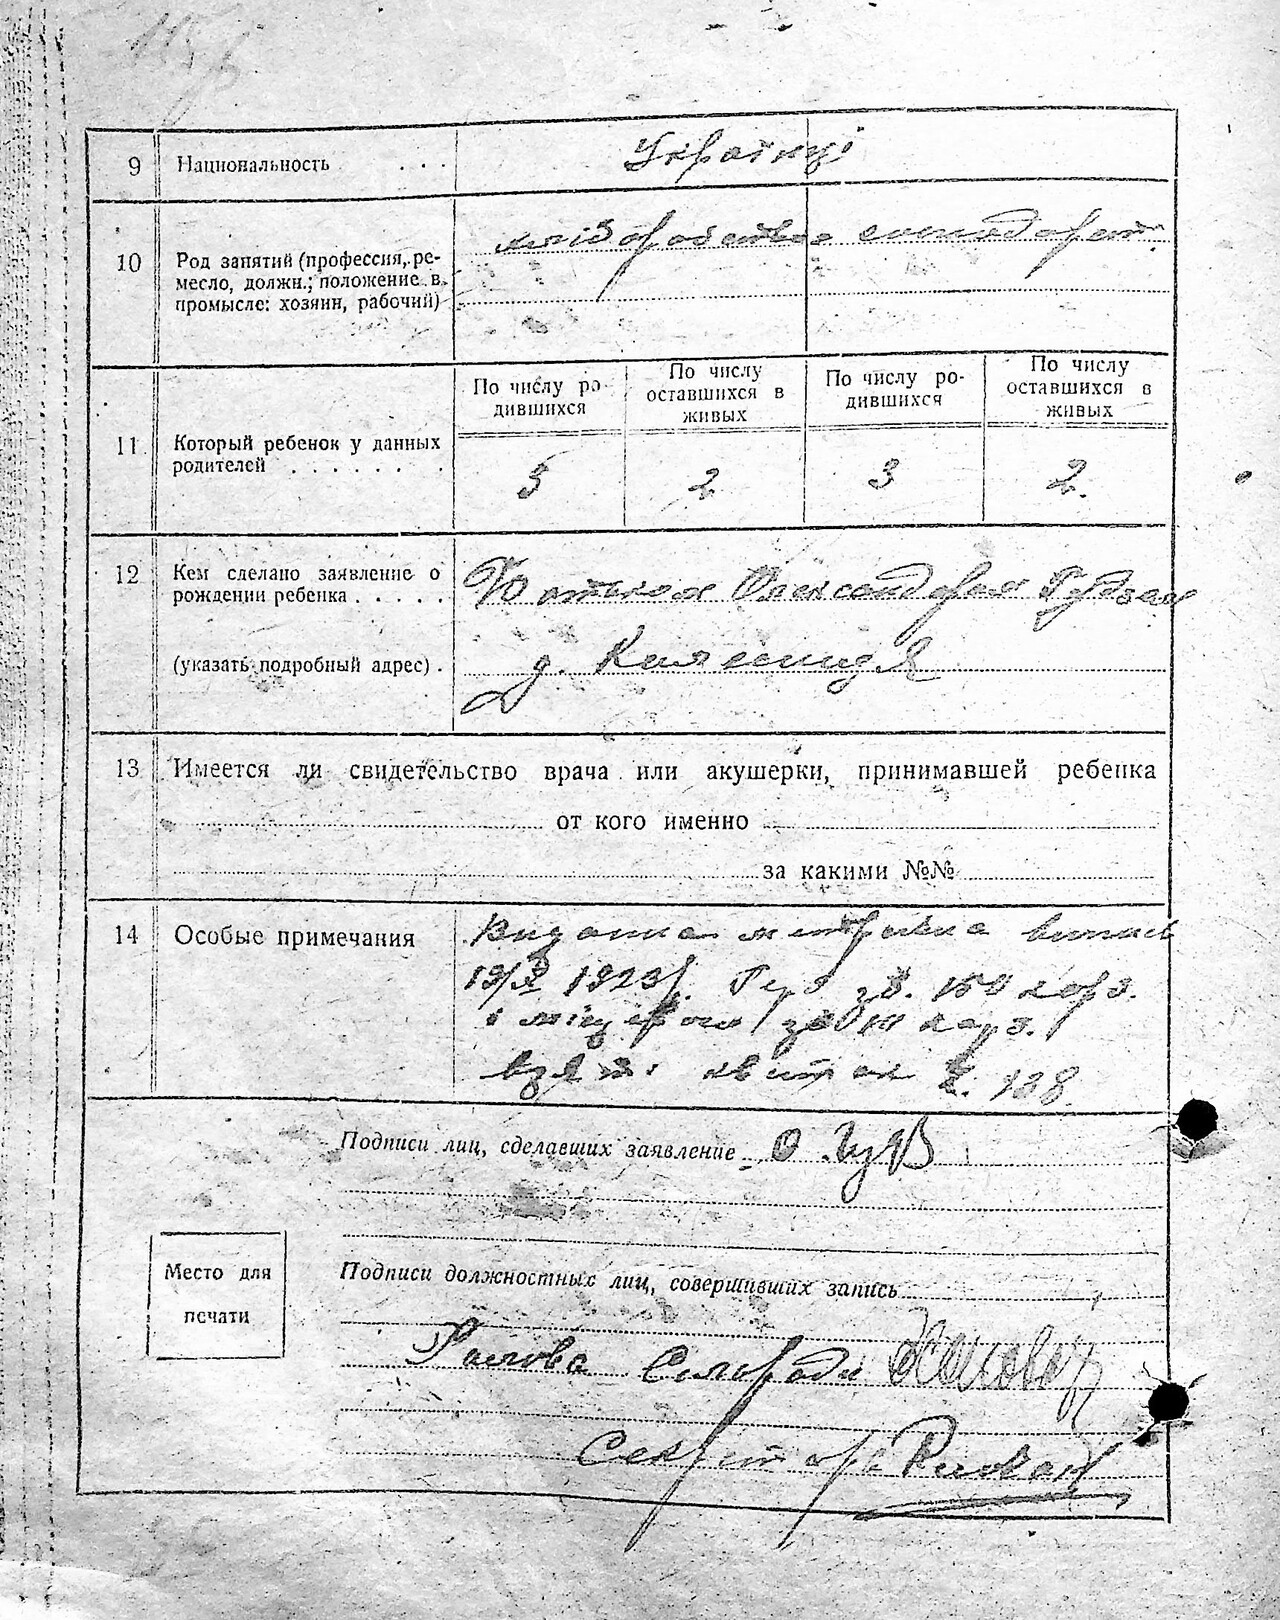 9 Национальность . . . Українці
10 Род занятий (профессия, ре-
месло, должн.; положение в
промысле: хозяин, рабочий)
хліборобство
11 Который ребенок у данных
родителей . . . . . . .
По числу ро-
дившихся
По числу
оставшихся в
живых
По числу ро-
дившихся
По числу
оставшихся в
живых
3 2 3 2.
12 Кем сделано заявление о
рождении ребенка . . . . .
Олександром
(указать подробный адрес) .
д.
13 Имеется ли свидетельство врача или акушерки, принимавшей ребенка
от кого именно
за какими №№
14 Особые примечания
Видана метрична випись
1923р. зб. 150 карб.
і місцевого збіт карб.
квитан 138
Подписи лиц, сделавших заявление О.
Место для
печати
Подписи должностных лиц, совершивших запись
Голова Сільради
Секретарь